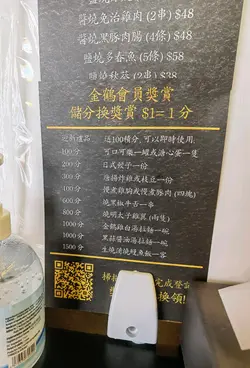 醬燒免治雞肉 (2串) $48
醬燒黑豚肉腸 (4條) $48
鹽燒多春魚 (5條) $58
(2串) $38
金鶴會員獎賞
儲分換獎賞 $1=1分
迎新禮品 送100積分, 可以即時使用
100分 可口可樂一罐或溏心蛋一隻
200分 日式餃子一份
300分 唐揚炸雞或枝豆一份
400分 慢煮雞胸或慢煮豚肉 (四塊)
600分 燒黑椒牛舌一串
600分 燒明太子雞翼 (兩隻)
800分 金鶴雞白湯拉麵一碗
1000分 黑蒜醬油湯拉麵一碗
1500分 生燒蒲燒鰻魚飯一客
掃 完成登記
換領!